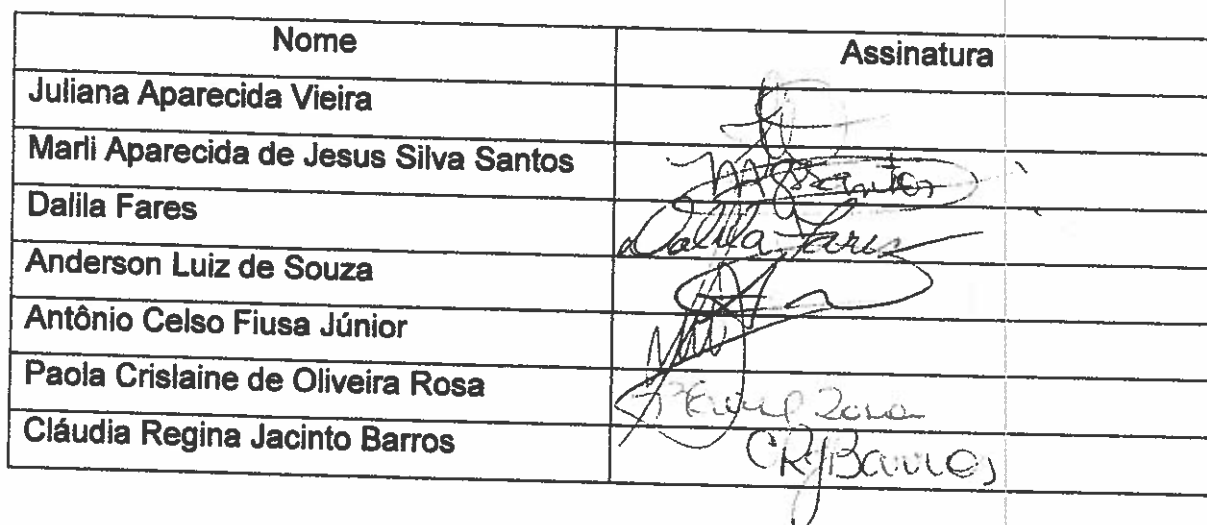 Nome Assinatura
Juliana Aparecida Vieira
Marli Aparecida de Jesus Silva Santos MJSSantos
Dalila Fares Dalila Fares
Anderson Luiz de Souza
Antônio Celso Fiusa Júnior
Paola Crislaine de Oliveira Rosa
Cláudia Regina Jacinto Barros CRJBarros